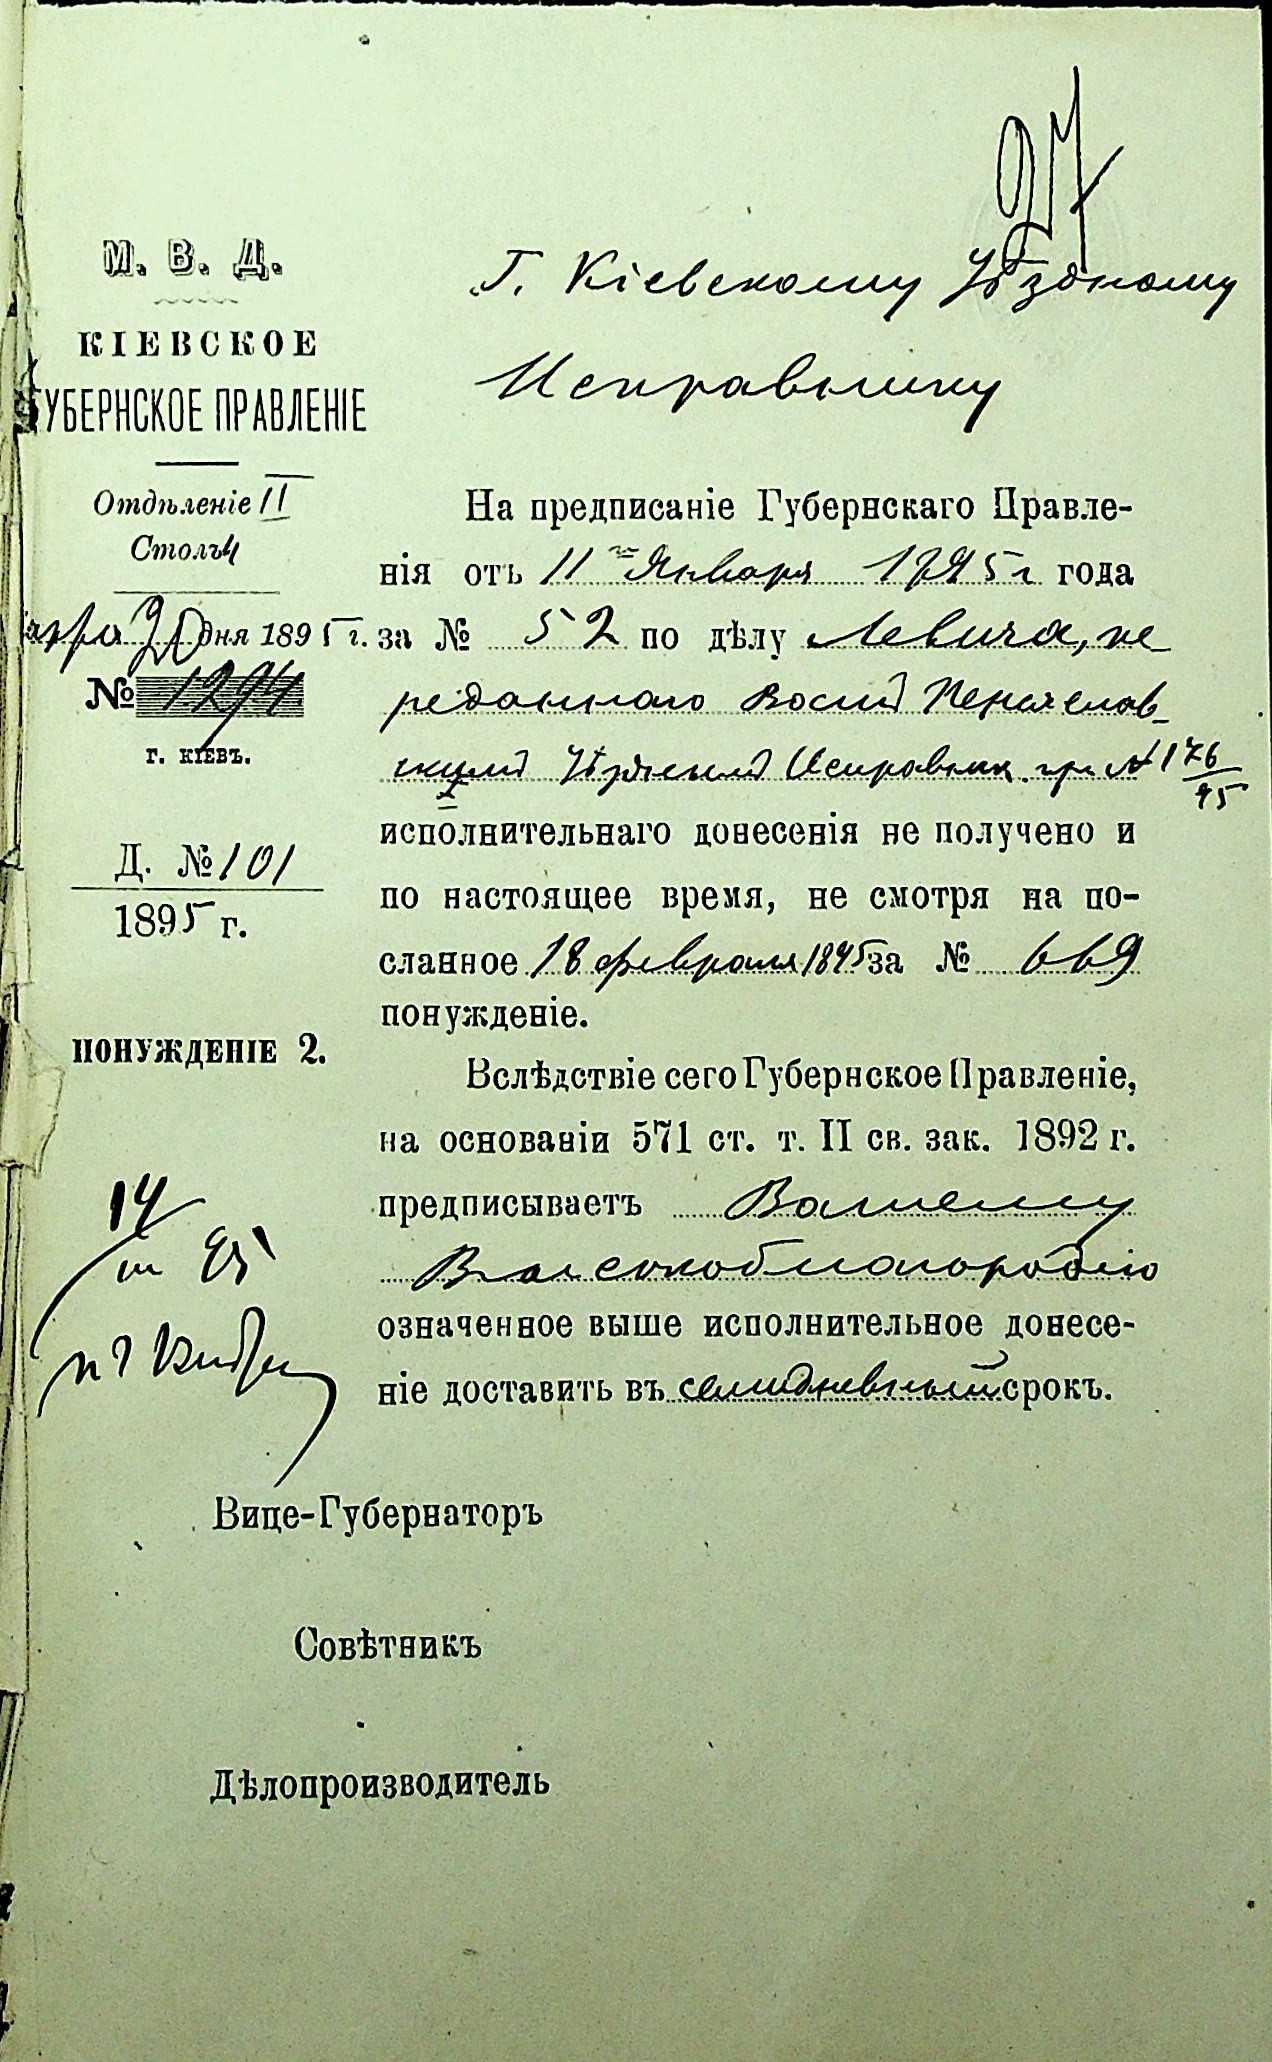 М. В. Д.
КІЕВСКОЕ
ГУБЕРНСКОЕ ПРАВЛЕНІЕ
Отдѣленіе II
Столъ 4
20 дня 1895 г.
№ 1294
г. КІЕВЪ.
Д. № 101
1895 г.
ПОНУЖДЕНІЕ 2.
14/III 95
Г. Кіевскому Уѣздному
Исправнику
На предписаніе Губернскаго Правле-
нія отъ 11 Января 1895 г года
за № 52 по дѣлу Левича, пе-
реданнаго Переяслав-
скимъ Уѣзднымъ Исправник. при № 176/95
исполнительнаго донесенія не получено и
по настоящее время, не смотря на по-
сланное 18 февраля 1895 за № 669
понужденіе.
Вслѣдствіе сего Губернское Правленіе,
на основаніи 571 ст. т. II св. зак. 1892 г.
предписываетъ Вашему
Высокоблагородію
означенное выше исполнительное донесе-
ніе доставить въ семидневный срокъ.
Вице-Губернаторъ
Совѣтникъ
Дѣлопроизводитель